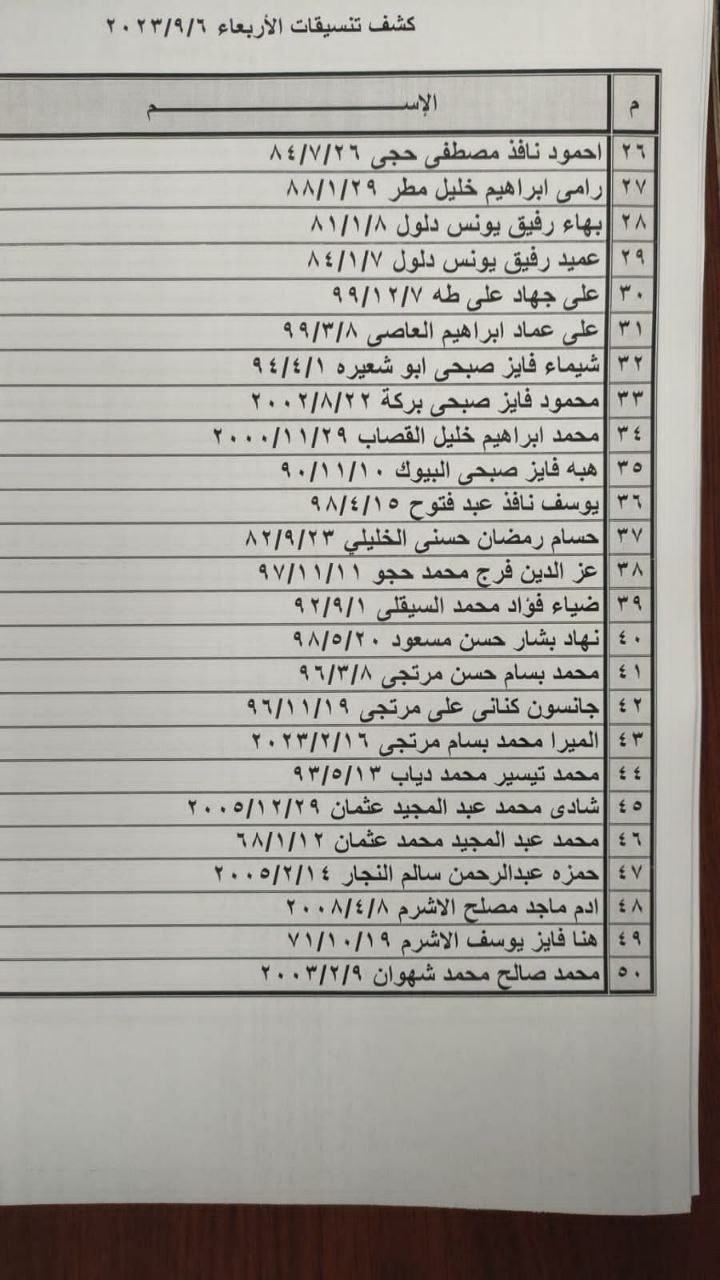 كشف تنسيقات الأربعاء ٢٠٢٣/٩/٦
م الإســـــــــــم
٢٦ احمود نافذ مصطفى حجى ٨٤/٧/٢٦
٢٧ رامى ابراهيم خليل مطر ٨٨/١/٢٩
٢٨ بهاء رفيق يونس دلول ٨١/١/٨
٢٩ عميد رفيق يونس دلول ٨٤/١/٧
٣٠ على جهاد على طه ٩٩/١٢/٧
٣١ على عماد ابراهيم العاصى ٩٩/٣/٨
٣٢ شيماء فايز صبحى ابو شعيره ٩٤/٤/١
٣٣ محمود فايز صبحى بركة ٢٠٠٢/٨/٢٢
٣٤ محمد ابراهيم خليل القصاب ٢٠٠٠/١١/٢٩
٣٥ هبه فايز صبحى البيوك ٩٠/١١/١٠
٣٦ يوسف نافذ عبد فتوح ٩٨/٤/١٥
٣٧ حسام رمضان حسنى الخليلي ٨٢/٩/٢٣
٣٨ عز الدين فرج محمد حجو ٩٧/١١/١١
٣٩ ضياء فؤاد محمد السيقلى ٩٢/٩/١
٤٠ نهاد بشار حسن مسعود ٩٨/٥/٢٠
٤١ محمد بسام حسن مرتجى ٩٦/٣/٨
٤٢ جانسون كنانى على مرتجى ٩٦/١١/١٩
٤٣ الميرا محمد بسام مرتجى ٢٠٢٣/٢/١٦
٤٤ محمد تيسير محمد دياب ٩٣/٥/١٣
٤٥ شادى محمد عبد المجيد عثمان ٢٠٠٥/١٢/٢٩
٤٦ محمد عبد المجيد محمد عثمان ٦٨/١/١٢
٤٧ حمزه عبدالرحمن سالم النجار ٢٠٠٥/٢/١٤
٤٨ ادم ماجد مصلح الاشرم ٢٠٠٨/٤/٨
٤٩ هنا فايز يوسف الاشرم ٧١/١٠/١٩
٥٠ محمد صالح محمد شهوان ٢٠٠٣/٢/٩